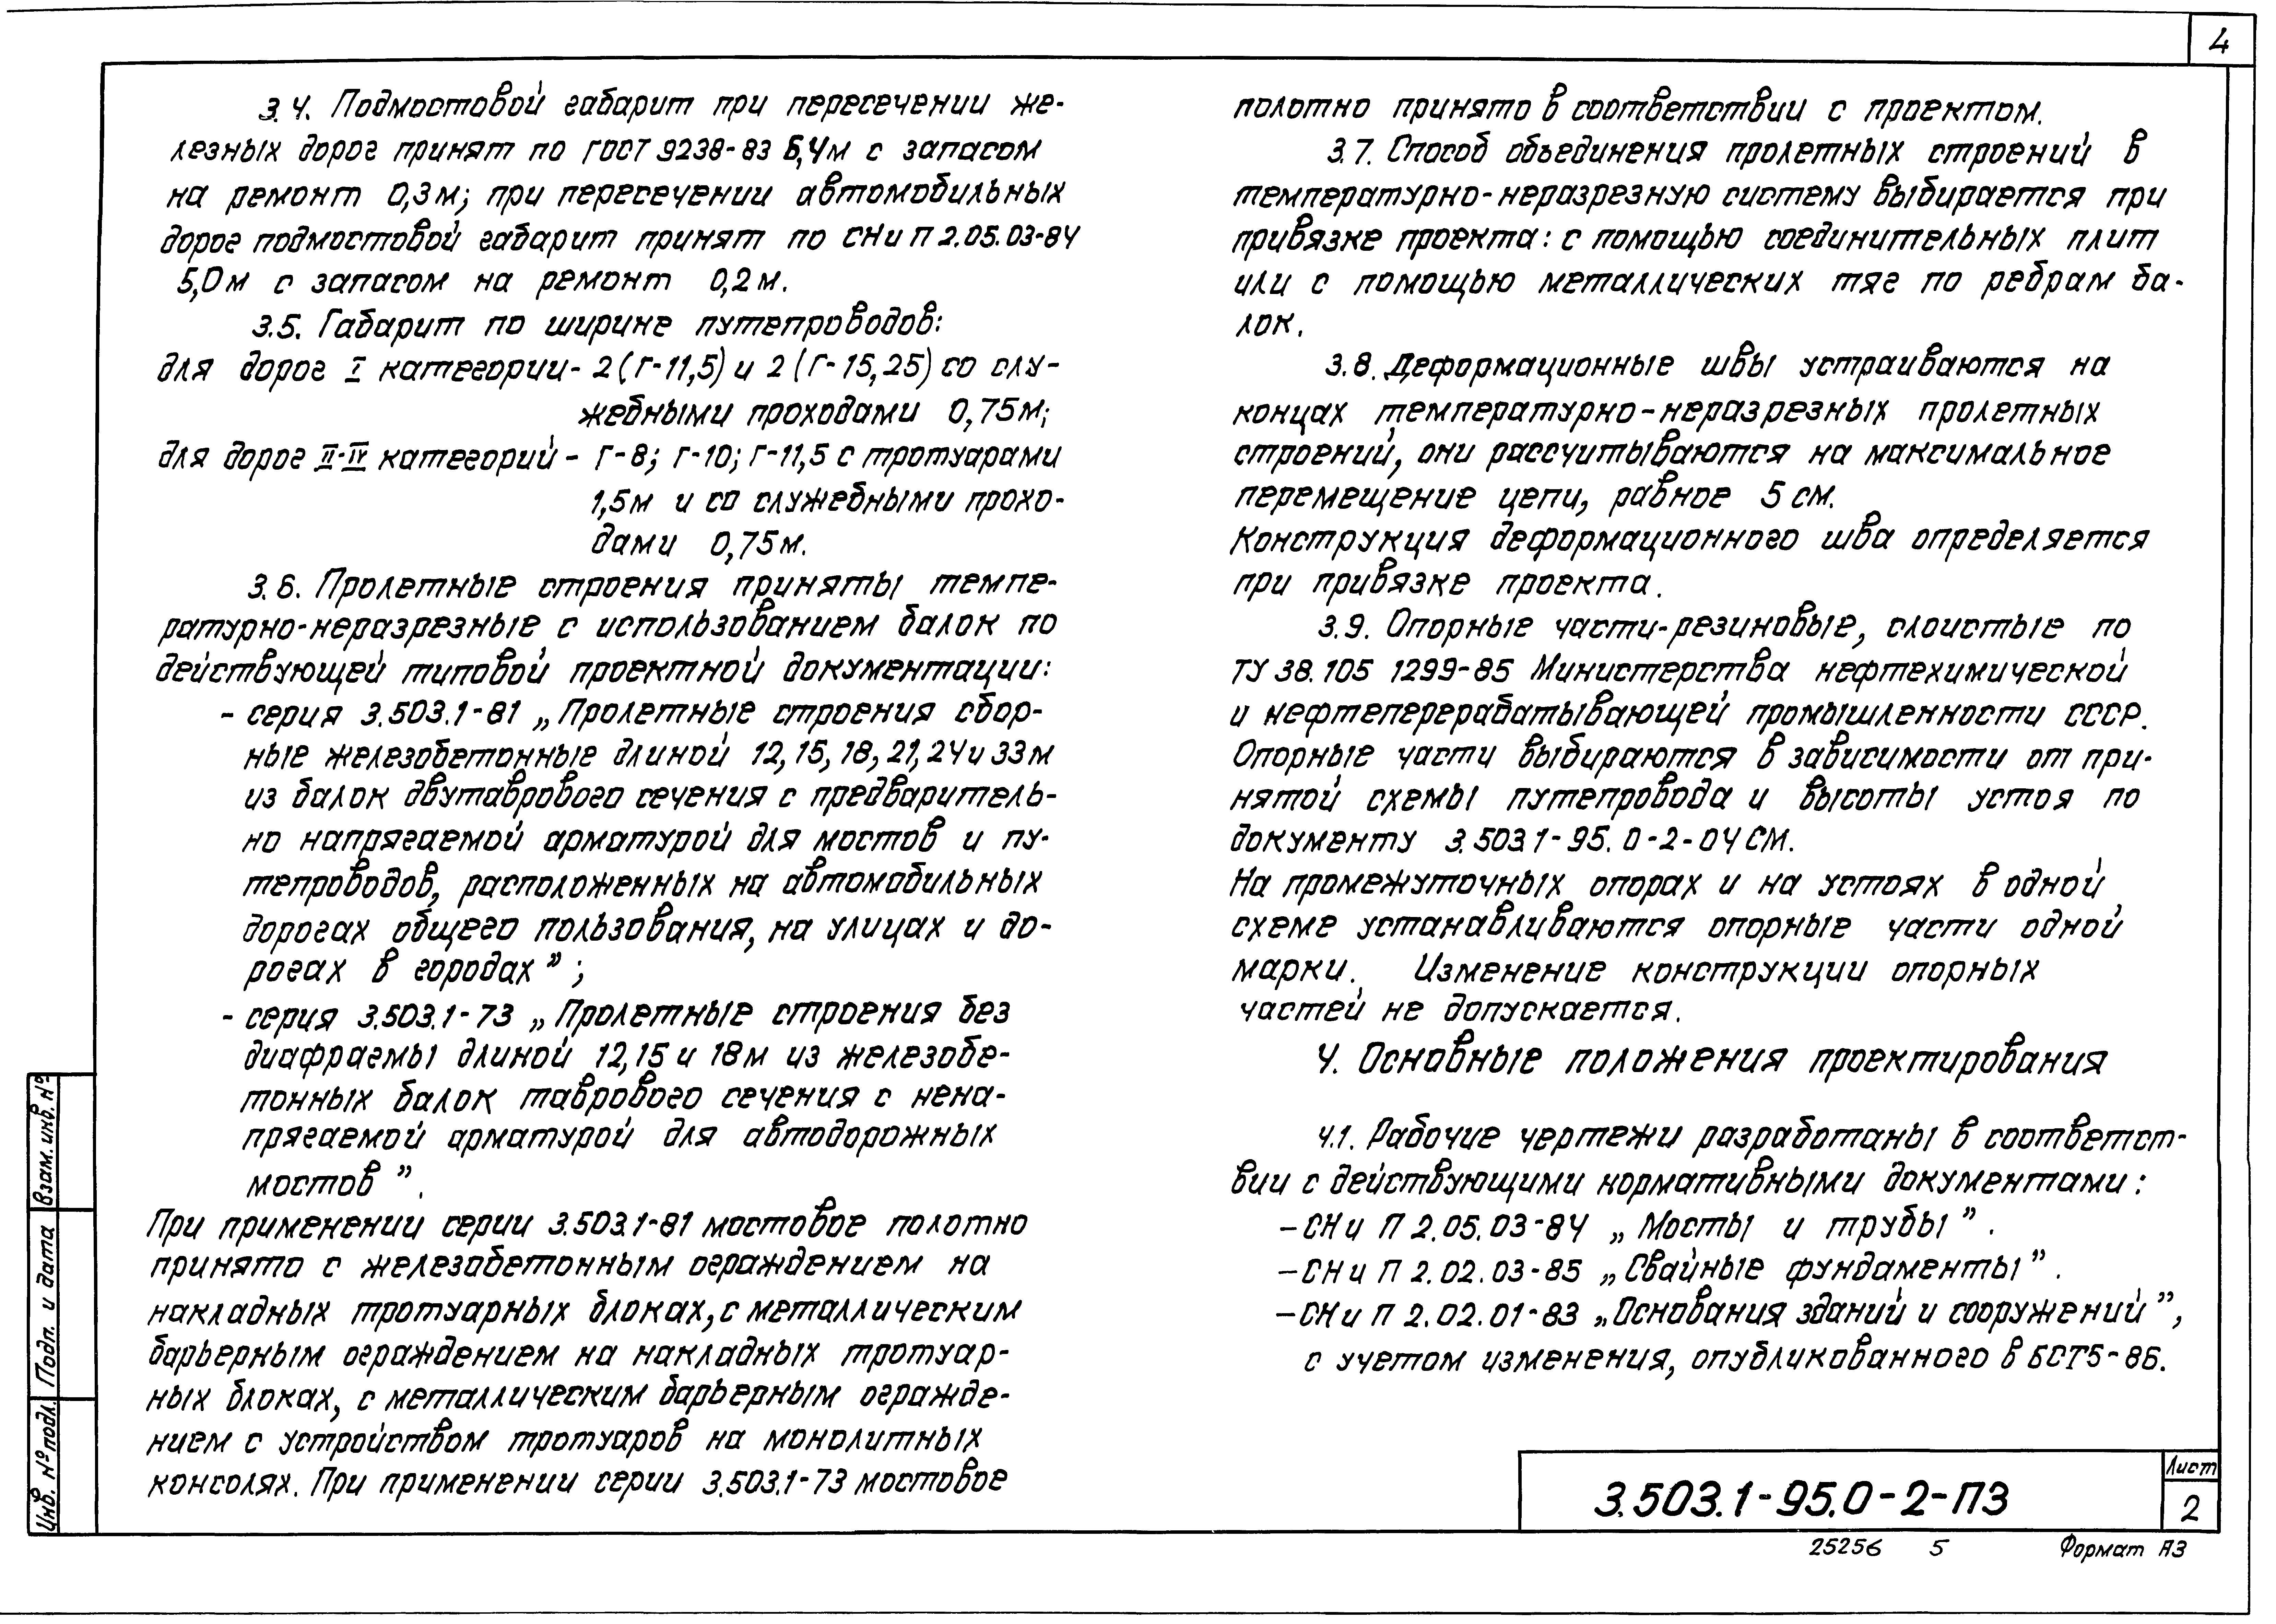 4
3.4. Подмостовой габарит при пересечении же-
лезных дорог принят по ГОСТ 9238-83 6,4м с запасом
на ремонт 0,3м; при пересечении автомобильных
дорог подмостовой габарит принят по СНиП 2.05.03-84
5,0м с запасом на ремонт 0,2м.
3.5. Габарит по ширине путепроводов:
для дорог I категории- 2(Г-11,5) и 2 (Г-15,25) со слу-
жебными проходами 0,75м;
для дорог II-IV категорий - Г-8; Г-10; Г-11,5 с тротуарами
1,5м и со служебными прохо-
дами 0,75м.
3.6. Пролетные строения приняты темпе-
ратурно-неразрезные с использованием балок по
действующей типовой проектной документации:
- серия 3.503.1-81 „Пролетные строения сбор-
ные железобетонные длиной 12, 15, 18, 21, 24 и 33м
из балок двутаврового сечения с предваритель-
но напрягаемой арматурой для мостов и пу-
тепроводов, расположенных на автомобильных
дорогах общего пользования, на улицах и до-
рогах в городах”;
- серия 3.503.1-73 „Пролетные строения без
диафрагмы длиной 12,15 и 18м из железобе-
тонных балок таврового сечения с нена-
прягаемой арматурой для автодорожных
мостов”.
При применении серии 3.503.1-81 мостовое полотно
принято с железобетонным ограждением на
накладных тротуарных блоках, с металлическим
барьерным ограждением на накладных тротуар-
ных блоках, с металлическим барьерным огражде-
нием с устройством тротуаров на монолитных
консолях. При применении серии 3.503.1-73 мостовое
полотно принято в соответствии с проектом.
3.7. Способ объединения пролетных строений в
температурно-неразрезную систему выбирается при
привязке проекта: с помощью соединительных плит
или с помощью металлических тяг по ребрам ба-
лок.
3.8. Деформационные швы устраиваются на
концах температурно-неразрезных пролетных
строений, они рассчитываются на максимальное
перемещение цепи, равное 5 см.
Конструкция деформационного шва определяется
при привязке проекта.
3.9. Опорные части-резиновые, слоистые по
ТУ 38.105 1299-85 Министерства нефтехимической
и нефтеперерабатывающей промышленности СССР.
Опорные части выбираются в зависимости от при-
нятой схемы путепровода и высоты устоя по
документу 3.503.1-95.0-2-04СМ.
На промежуточных опорах и на устоях в одной
схеме устанавливаются опорные части одной
марки. Изменение конструкции опорных
частей не допускается.
4. Основные положения проектирования
4.1. Рабочие чертежи разработаны в соответст-
вии с действующими нормативными документами:
-СНиП 2.05.03-84 „Мосты и трубы”.
-СНиП 2.02.03-85 „Свайные фундаменты”.
-СНиП 2.02.01-83 „Основания зданий и сооружений”,
с учетом изменения, опубликованного в БСТ5-86.
Взам. инв. №
Подп. и дата
Инв. № подл.
3.503.1-95.0-2-ПЗ
Лист
2
25256 5 Формат А3